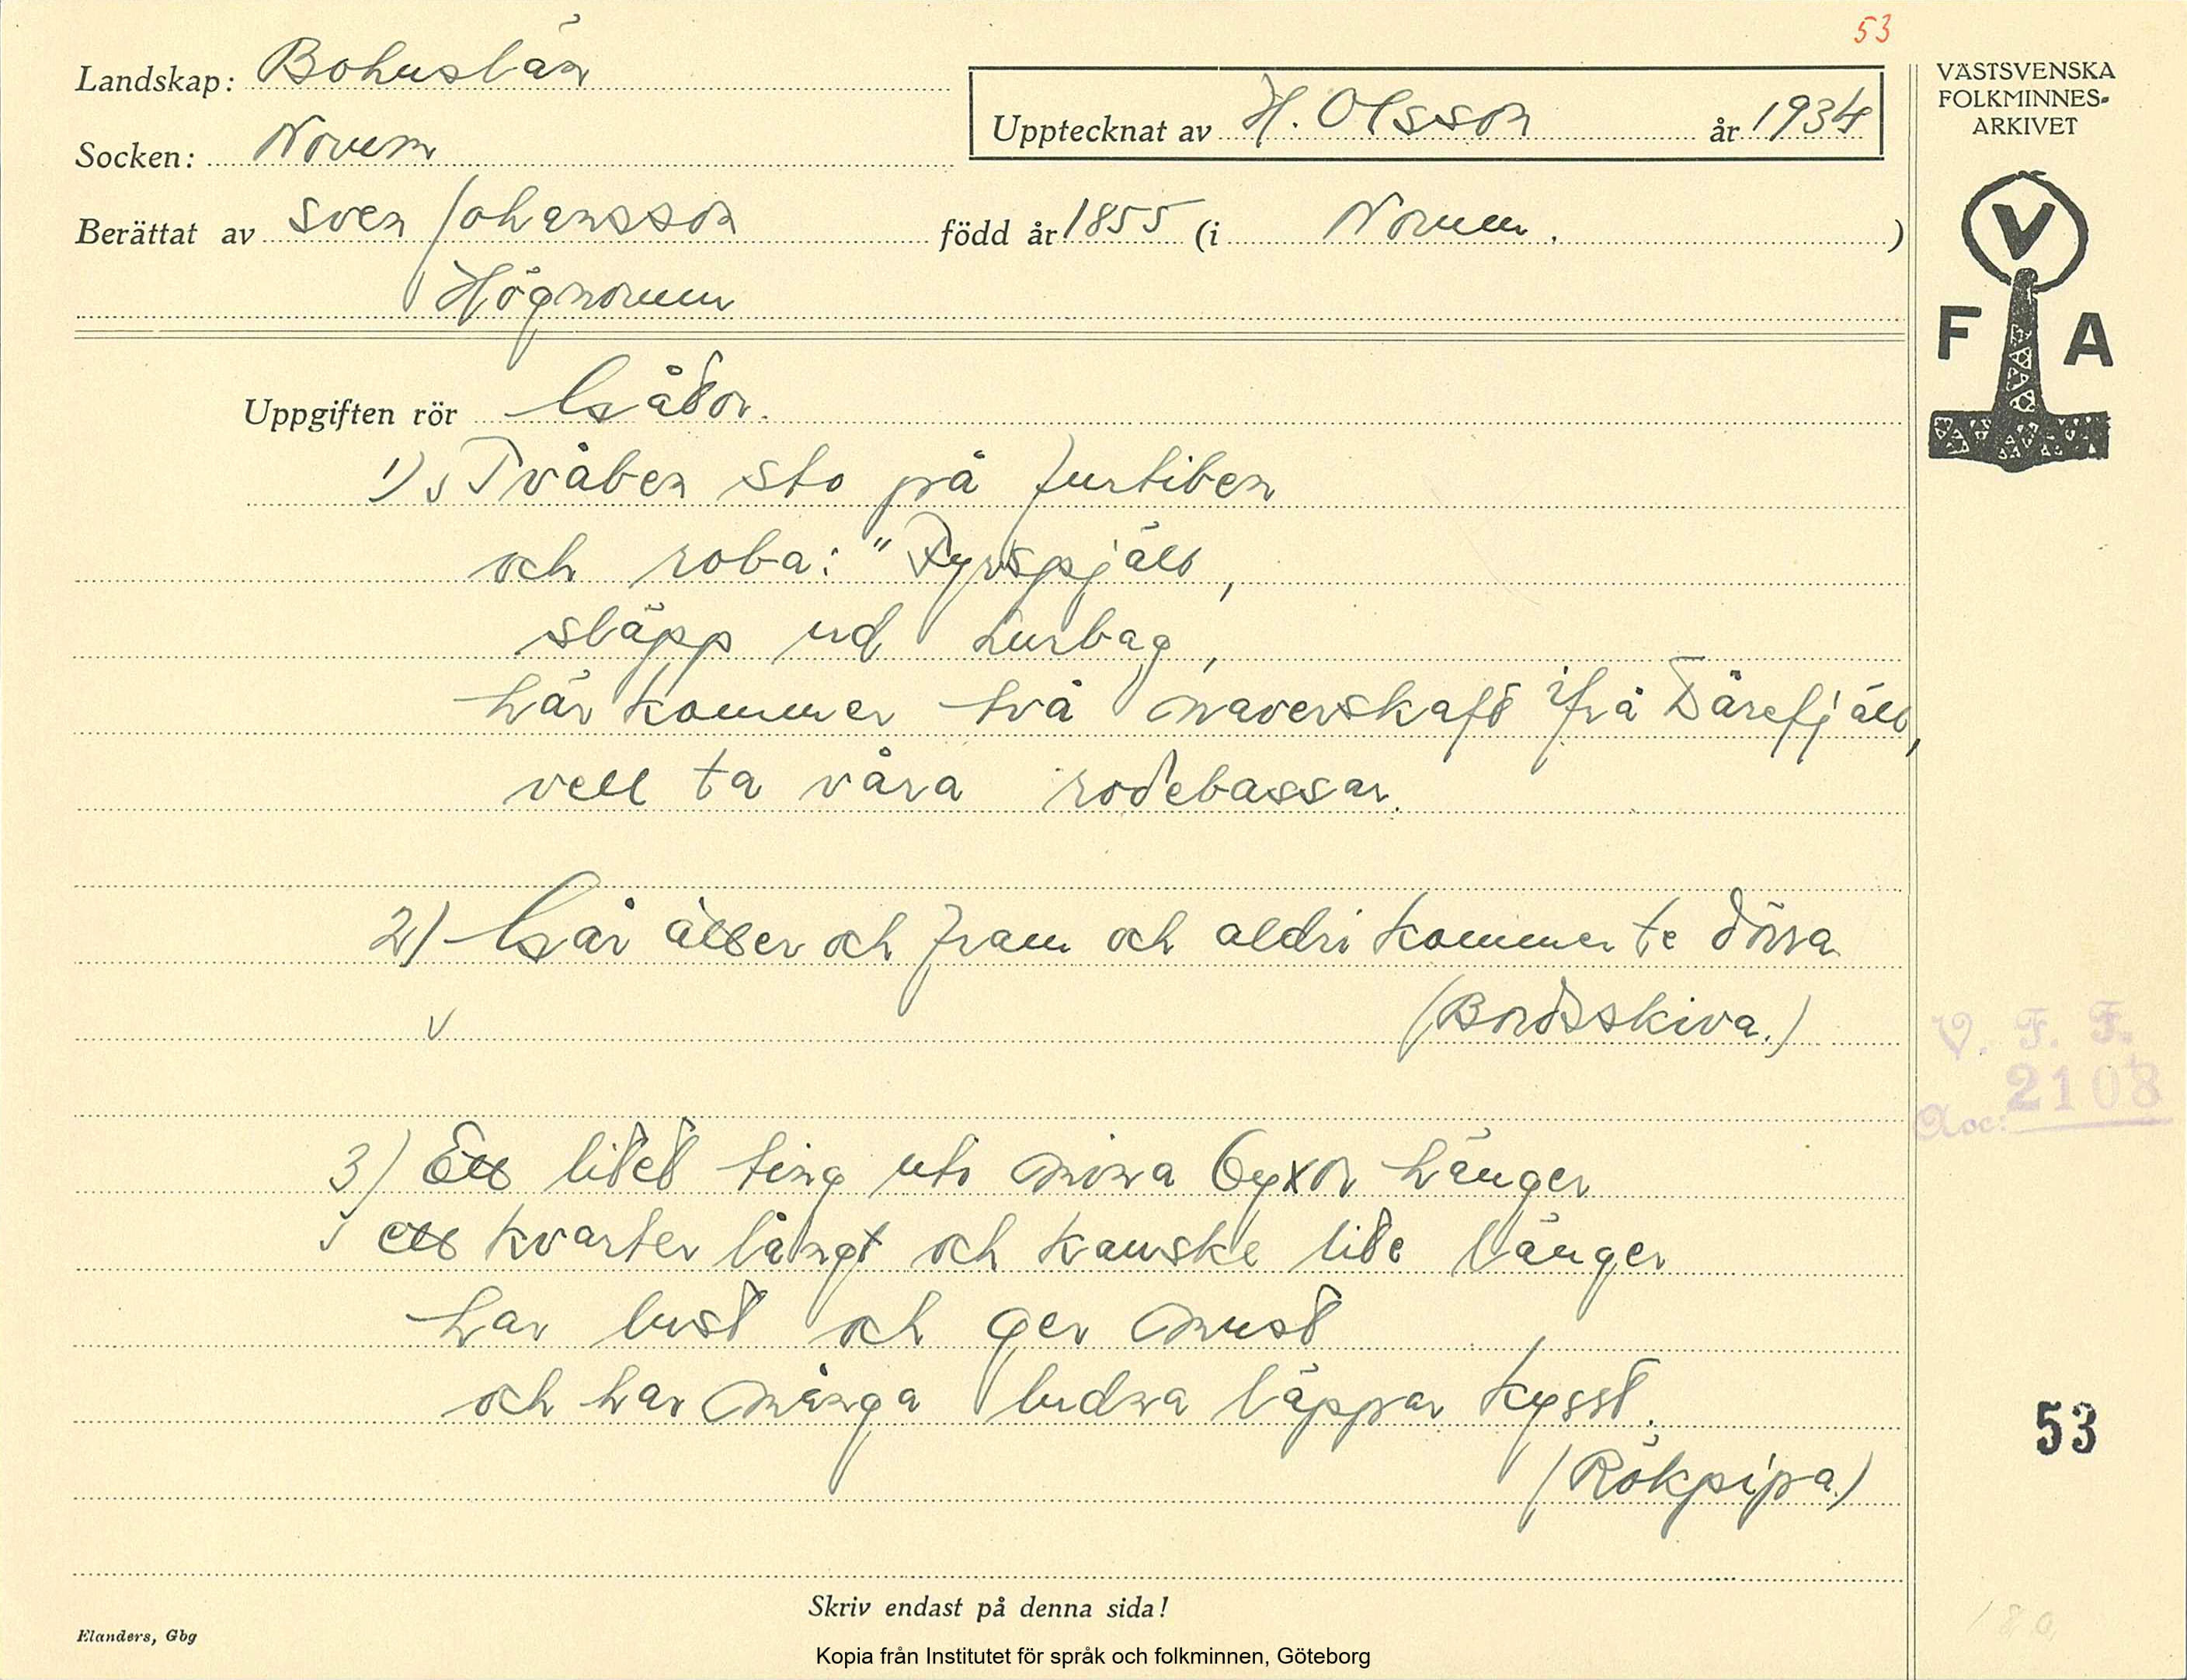 53
Landskap: Bohuslän
Socken: Norum
Upptecknat av H. Olsson år 1934
Berättat av Sven Johansson född år 1855 (i Norum.)
Högnorum
VÄSTSVENSKA
FOLKMINNES-
ARKIVET
V
F A
Uppgiften rör Gådor.
1) Tvåben sto på furtiben
och roba: "Fyrspjäls,
släpp ud Lurbag,
här kommer två naverskaft ifrå Dårefjäll,
vell ta våra rodebassar.
2) Går åtter och fram och aldri kommer te dörra
(Bordsskiva.)
V. F. F.
Acc: 2108
3) Ett litet ting uti mina byxor hänger
ett kvarter långt och kanske lite länger
har lust och ger must
och har många ludna läppar kysst.
(Rökpipa)
53
Skriv endast på denna sida!
Elanders, Gbg
180
Kopia från Institutet för språk och folkminnen, Göteborg